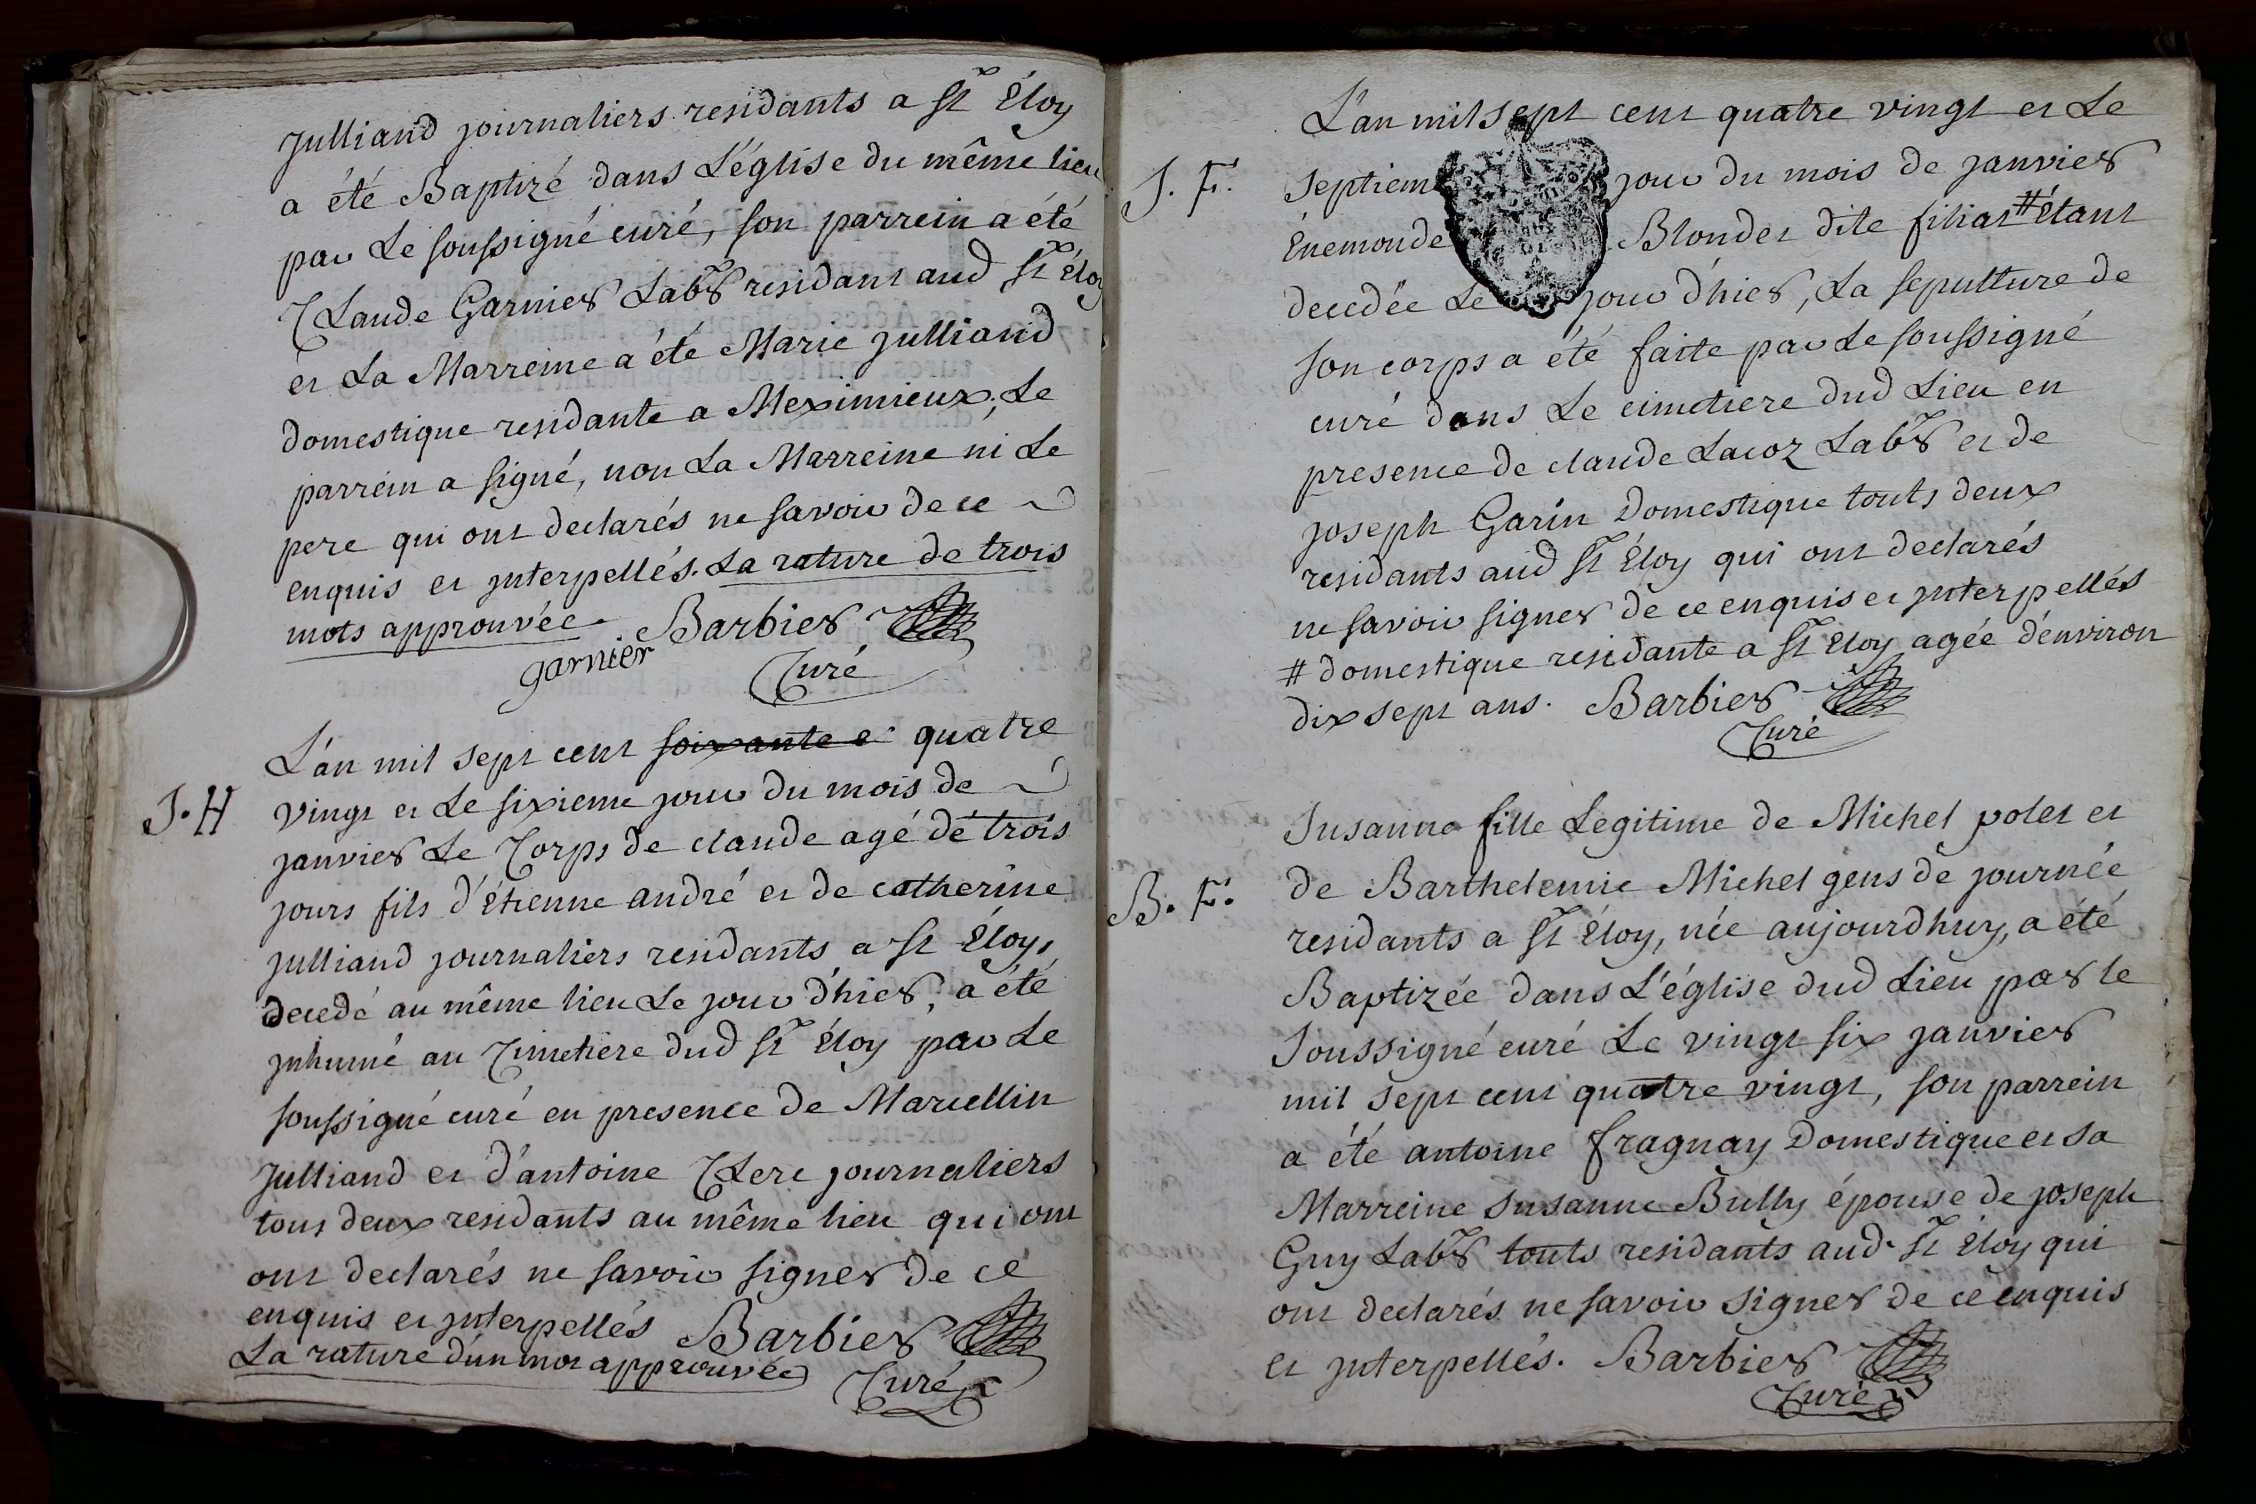 Julliand journaliers residants a St Éloy
a été Baptizé dans L'église du même lieu
par Le soussigné curé, son parrein a été
Claude Garnier Labr residant aud St Éloy
et La Marreine a été Marie Julliand
domestique residante a Meximieux, Le
parrein a signé, non La Marreine ni Le
pere qui ont declarés ne savoir de ce
enquis et jnterpellés. La rature de trois
mots approuvée. Barbier
garnier Curé
L'an mil sept cent soixante e quatre
J. H vingt et Le sixieme jour du mois de
janvier Le Corps de claude agé de trois
jours fils d'Étienne andré et de catherine
julliand journaliers residants a St Éloy,
decedé au même lieu Le jour d'hier, a été
jnhumé au Cimetiere dud St Éloy par Le
soussigné curé en presence de Marcellin
Julliand et d'antoine Clerc journaliers
tous deux residants au même lieu qui ont
ont declarés ne savoir signer de ce
enquis et jnterpellés Barbier
La rature d'un mot approuvée Curé
L'an mil sept cent quatre vingt et Le
J. F. septiem jour du mois de janvier
Énemonde Blondet dite filiat # Étant
decedée Le jour d'hier, La sepulture de
son corps a été faite par Le soussigné
curé dans Le cimetiere dud Lieu en
presence de claude Lacoz Labr et de
joseph Garin Domestique touts deux
residants aud St Éloy qui ont declarés
ne savoir signer de ce enquis et jnterpellés
# domestique residante a St Éloy agée d'environ
dix sept ans. Barbier
Curé
Susanne fille Legitime de Michel polet et
B. F. de Barthelemie Michel gens de journée
residants a St Éloy, née aujourdhuy, a été
Baptizée dans L'église dud Lieu par le
Soussigné curé Le vingt six janvier
mil sept cent quatre vingt, son parrein
a été antoine fragnay Domestique et sa
Marreine susanne Bully épouse de joseph
Guy Labr touts residants aud St Éloy qui
ont declarés ne savoir signer de ce enquis
et jnterpellés. Barbier
Curé